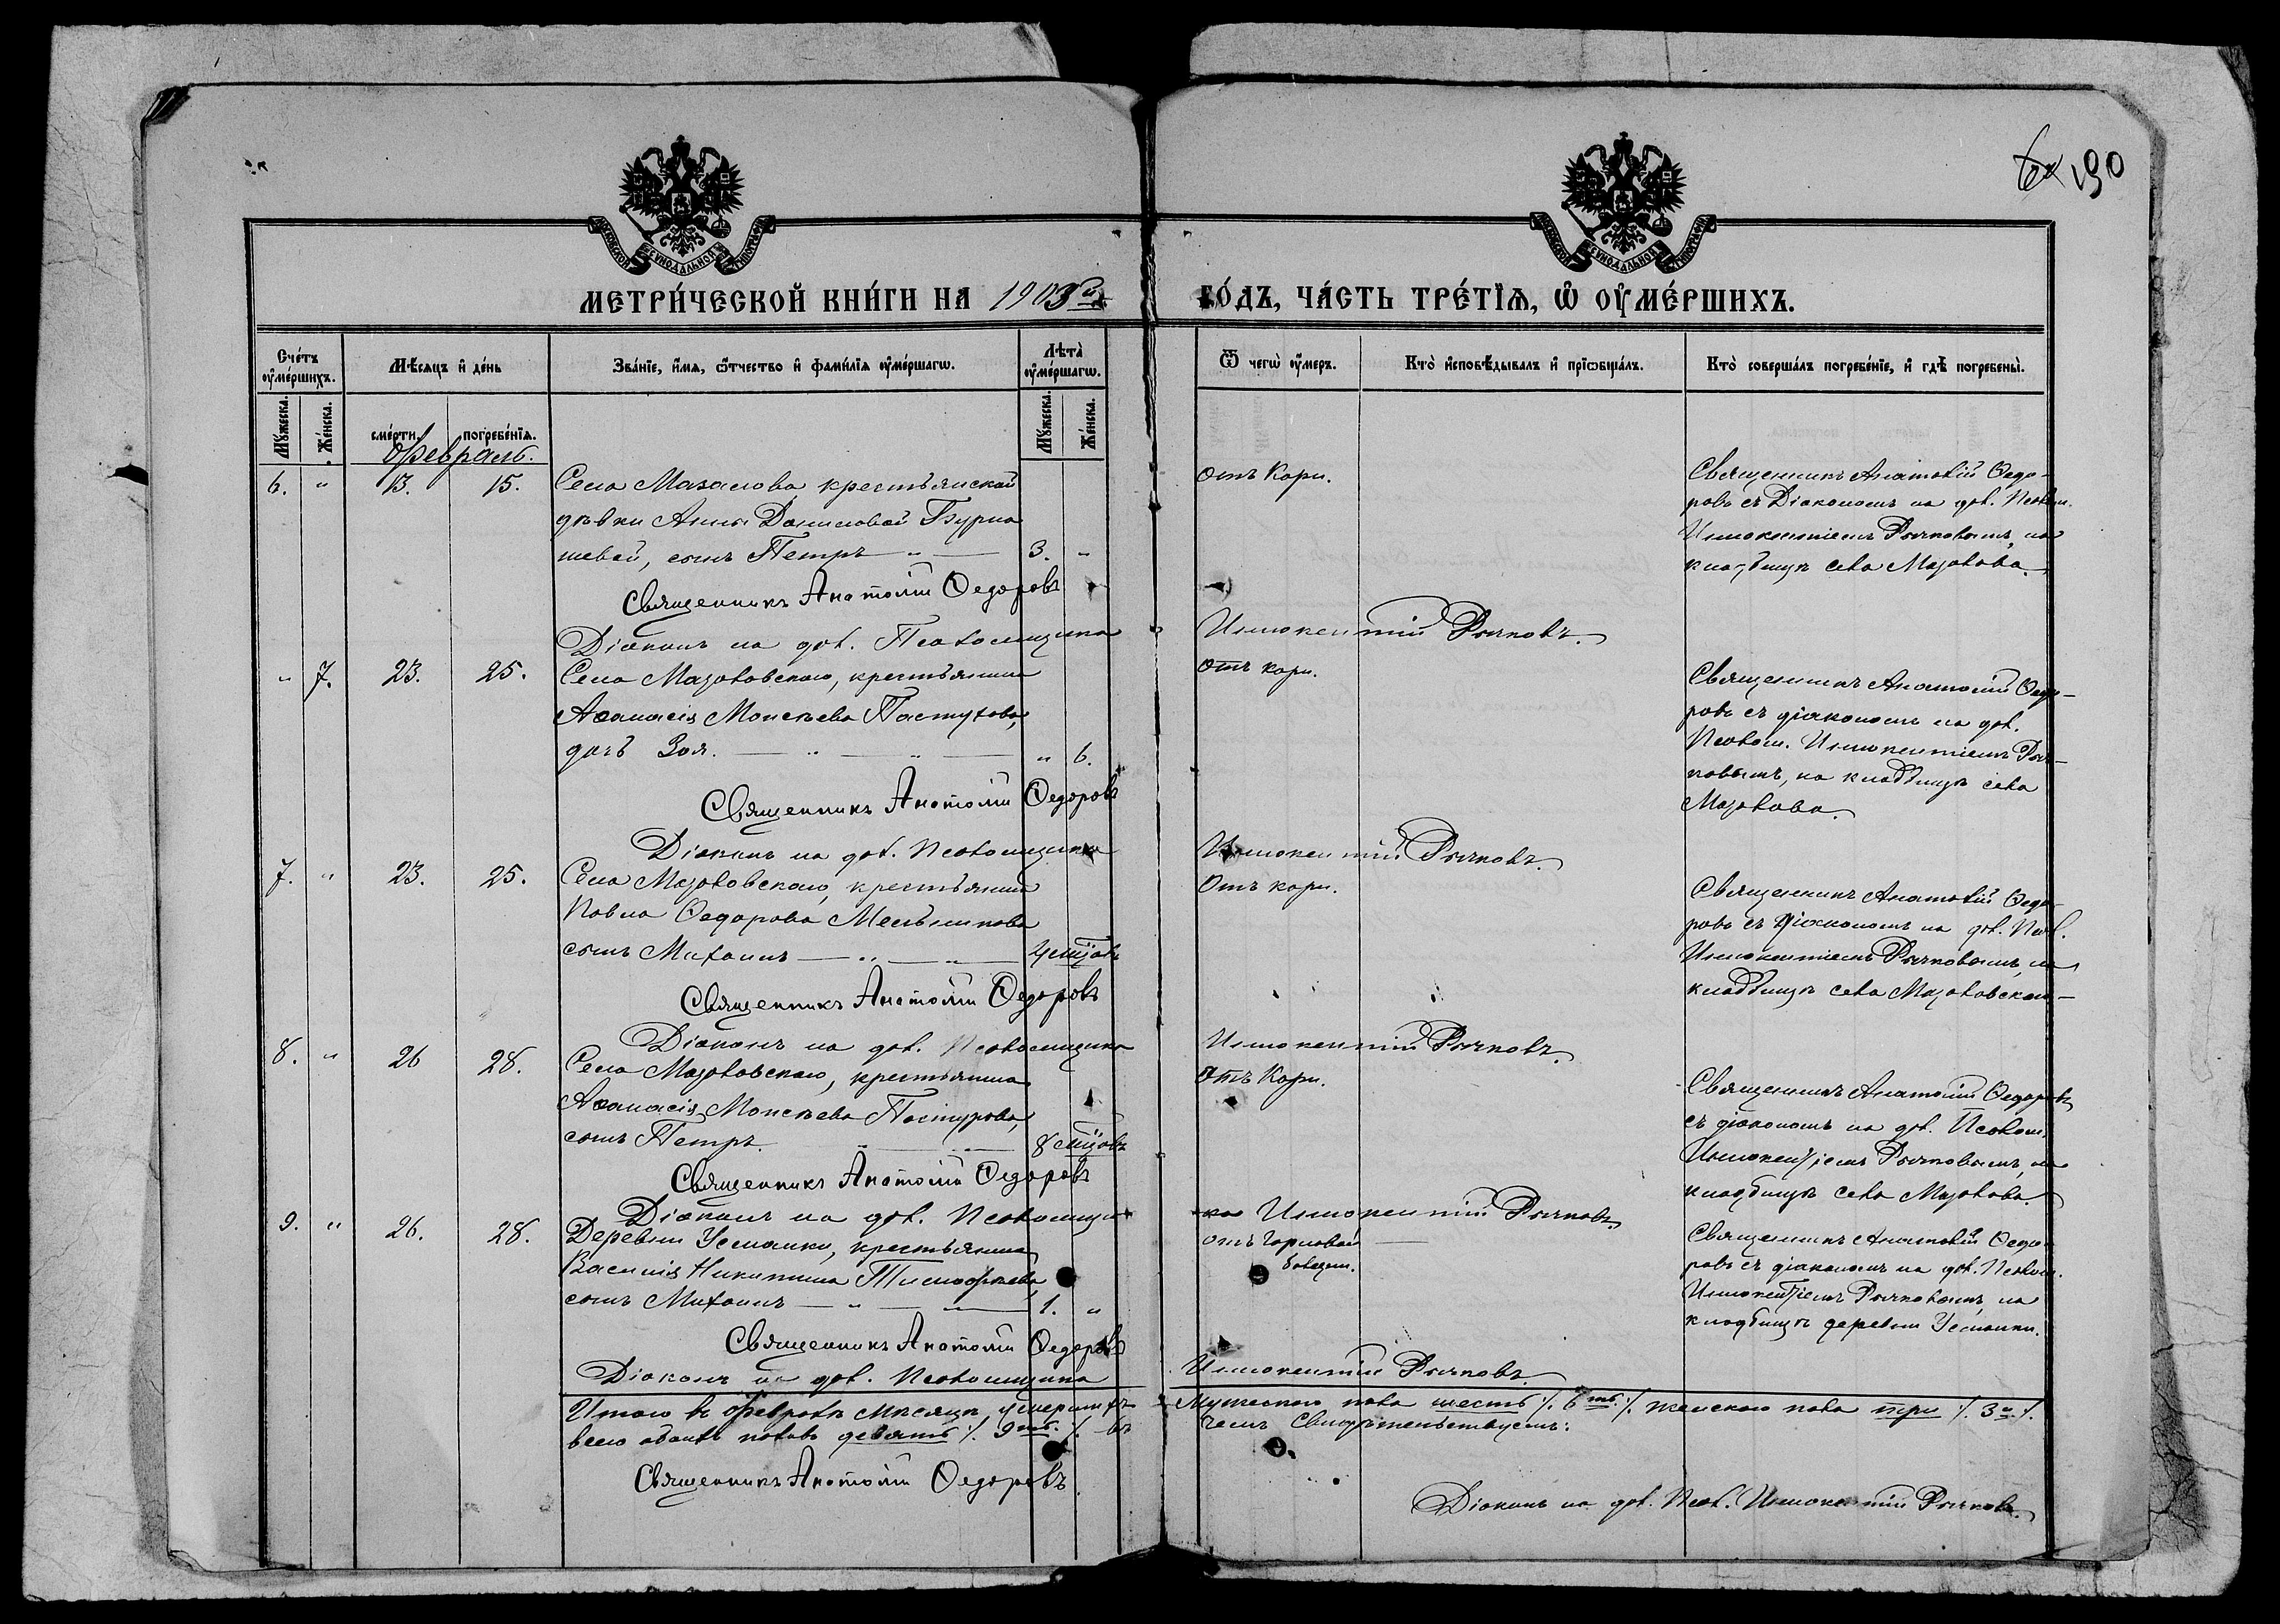 190
МОСКОВСКОЙ СѴНОДАЛЬНОЙ ТИПОГРАФІИ
МОСКОВСКОЙ СѴНОДАЛЬНОЙ ТИПОГРАФІИ
МЕТРИ́ЧЕСКОЙ КНИ́ГИ НА 1903й
ГО́ДЪ, ЧА́СТЬ ТРЕ́ТІѦ, Ѽ ОУ҆МЕ́РШИХЪ.
Сче́тъ оу҆ме́ршихъ.
Мѣ́сѧцъ и҆ де́нь
Зва́нїе, и҆́мѧ, ѻ҆́тчество и҆ фами́лїѧ оу҆ме́ршагѡ.
Лѣ́та оу҆ме́ршагѡ.
Ѿ чегѡ̀ оу҆́меръ.
Кто̀ и҆сповѣ́дывалъ и҆ прїѡбща́лъ.
Кто̀ соверша́лъ погребе́нїе, и҆ гдѣ̀ погребены̀.
Мꙋ́жеска.
Же́нска.
сме́рти.
погребе́нїѧ.
Мꙋ́жеска.
Же́нска.
Февраль.
6. " 13. 15.
Села Мазалова крестьянской
дѣвки Анны Даниловой Бурна
шевой, сынъ Петръ — " — 3. "
отъ Кори.
Священникъ Анатолій Ѳедо-
ровъ съ Діакономъ на дол. Псалом.
Иннокентіемъ Рычковымъ, на
кладбищѣ села Мазалова.
Священникъ Анатолій Ѳедоровъ
Діаконъ на дол. Псаломщика Иннокентій Рычковъ.
" 7. 23. 25.
Села Мазаловскаго, крестьянина
Аѳанасія Моисѣева Пастухова,
дочь Зоя. — " — " — " 6.
отъ кори.
Священникъ Анатолій Ѳедо-
ровъ съ діакономъ на дол.
Псалом. Иннокентіемъ Рыч-
ковымъ, на кладбищѣ села
Мазалова.
Священникъ Анатолій Ѳедоровъ
Діаконъ на дол. Псаломщика Иннокентій Рычковъ.
7. " 23. 25.
Села Мазаловскаго, крестьянина
Павла Ѳедорова Мельникова
сынъ Михаилъ — " — " —
Отъ кори.
Священникъ Анатолій Ѳедо-
ровъ съ Діакономъ на дол. Псал.
Иннокентіемъ Рычковымъ, на
кладбищѣ села Мазаловскаго—
Священникъ Анатолій Ѳедоровъ
Діаконъ на дол. Псаломщика Иннокентій Рычковъ.
8. " 26 28.
Села Мазаловскаго, крестьянина
Аѳанасія Моисѣева Пастухова,
сынъ Петръ. — " — 8 мѣсяцовъ
Отъ Кори.
Священникъ Анатолій Ѳедоровъ
съ діакономъ на дол. Псалом.
Иннокентіемъ Рычковымъ, на
кладбищѣ села Мазалова.
Священникъ Анатолій Ѳедоровъ
Діаконъ на дол. Псаломщи- ка Иннокентій Рычковъ.
9. " 26. 28.
Деревни Усманки, крестьянина
Василія Никитина Тимофѣева,
сынъ Михаилъ — " — " — 1. "
отъ горловой —
болезни.
Священникъ Анатолій Ѳедо-
ровъ съ діакономъ на дол. Псалом.
Иннокентіемъ Рычковымъ, на
кладбищѣ деревни Усманки.
Священникъ Анатолій Ѳедоровъ
Діаконъ на дол. Псаломщика Иннокентій Рычковъ.
Итого въ Февралѣ мѣсяцѣ умершихъ мужескаго пола шесть ·/. 6ть ·/. женскаго пола три ·/. 3и ·/.
всего обоихъ половъ девять ·/. 9ть. ·/. въ чемъ Свидѣтельствуемъ:
Священникъ Анатолій Ѳедоровъ
Діаконъ на дол. Псал. Иннокентій Рычковъ.